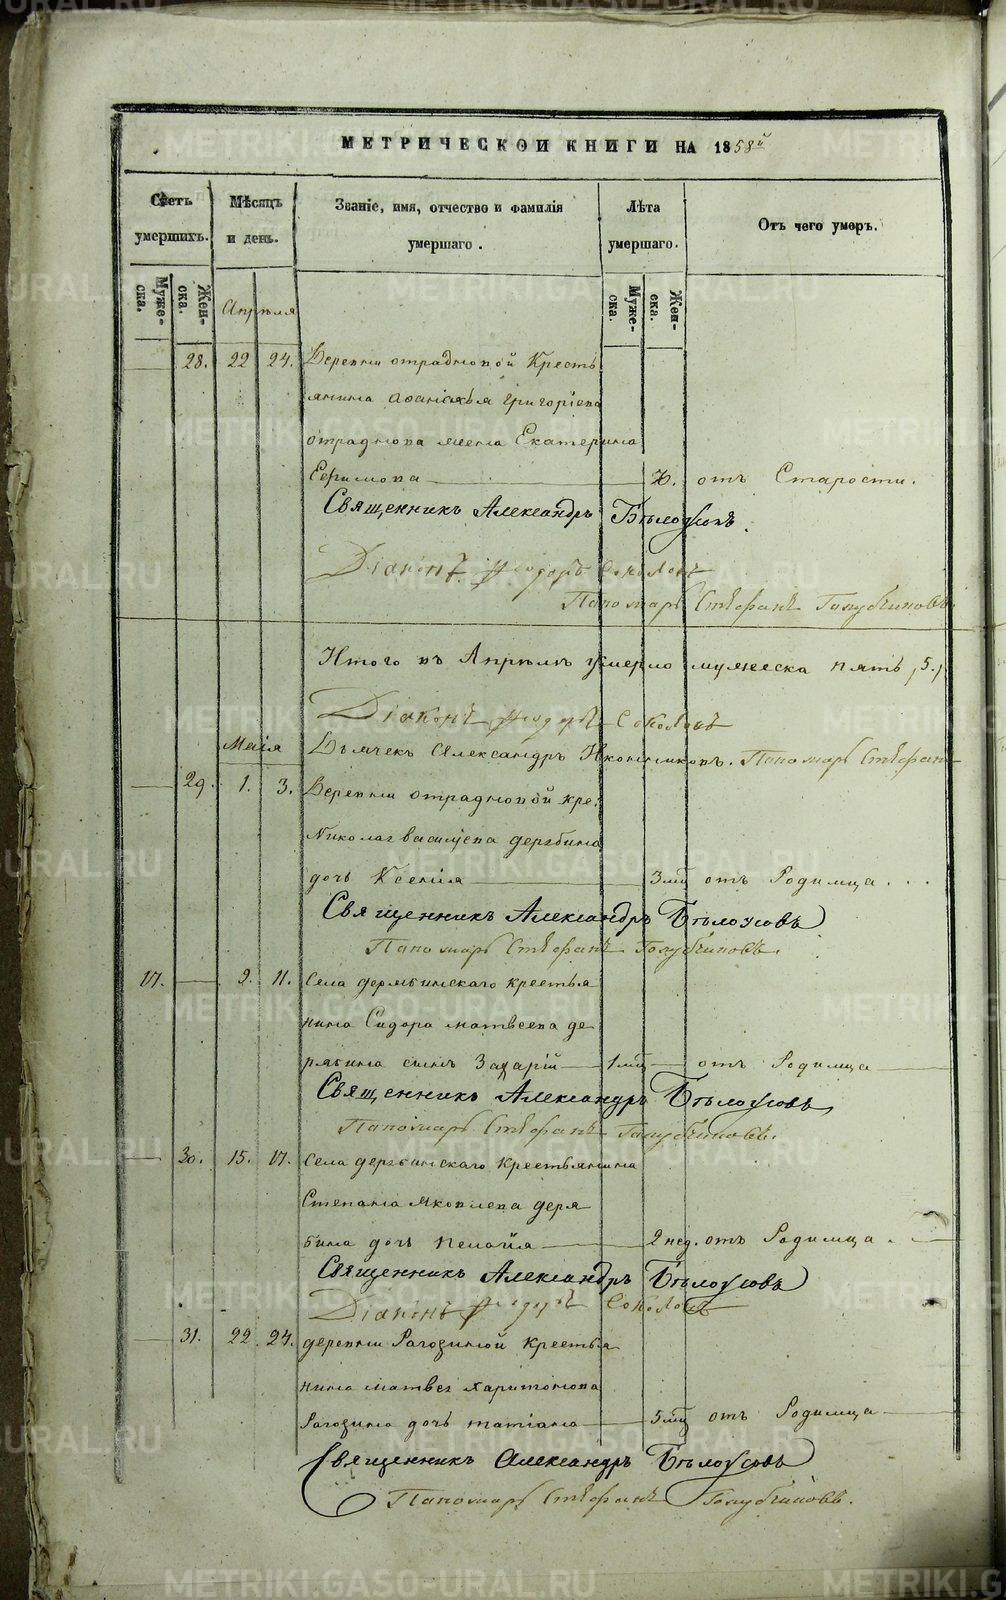 МЕТРИЧЕСКОЙ КНИГИ НА 1858й
Счетъ умершихъ. Мѣсяцъ и день. Званіе, имя, отчество и фамилія умершаго. Лѣта умершаго. Отъ чего умеръ.
Муже-ска. Жен-ска. Муже-ска. Жен-ска.
Апрѣля
28. 22 24. Деревни Отрадновой Кресть
янина Аѳанасья Григоріева
Отраднова жена Екатерина
Ефимова 70. отъ Старости.
Священникъ Александръ Бѣлоусовъ.
Діаконъ Ѳеодоръ Соколовъ
Пономарь Стефанъ
Итого въ Апрѣлѣ умерло мужеска пять, 5.,
Діаконъ Ѳеодоръ Соколовъ
Маія
Дьячекъ Александръ Иконниковъ. Пономарь Стефанъ
29. 1. 3. Деревни Отрадновой кре:
Николая Васильева Дерябина
дочь Ксенія 3 мц отъ Родимца...
Священникъ Александръ Бѣлоусовъ
Пономарь Стефанъ
17. 9. 11. Села Дерябинскаго крестья
нина Сидора Матвеева Де
рябина сынъ Захарій 1 мц отъ Родимца
Священникъ Александръ Бѣлоусовъ
Пономарь Стефанъ
30. 15. 17. Села Дерябинскаго Крестьянина
Степана Яковлева Деря
бина дочь Пелагія 2 нед. отъ Родимца.
Священникъ Александръ Бѣлоусовъ
Діаконъ Ѳеодоръ Соколовъ
31. 22. 24. деревни Рагозиной Крестья
нина Матвея Харитонова
Рагозина дочь Татіана 5 мц отъ Родимца
Священникъ Александръ Бѣлоусовъ
Пономарь Стефанъ
METRIKI.GASO-URAL.RU